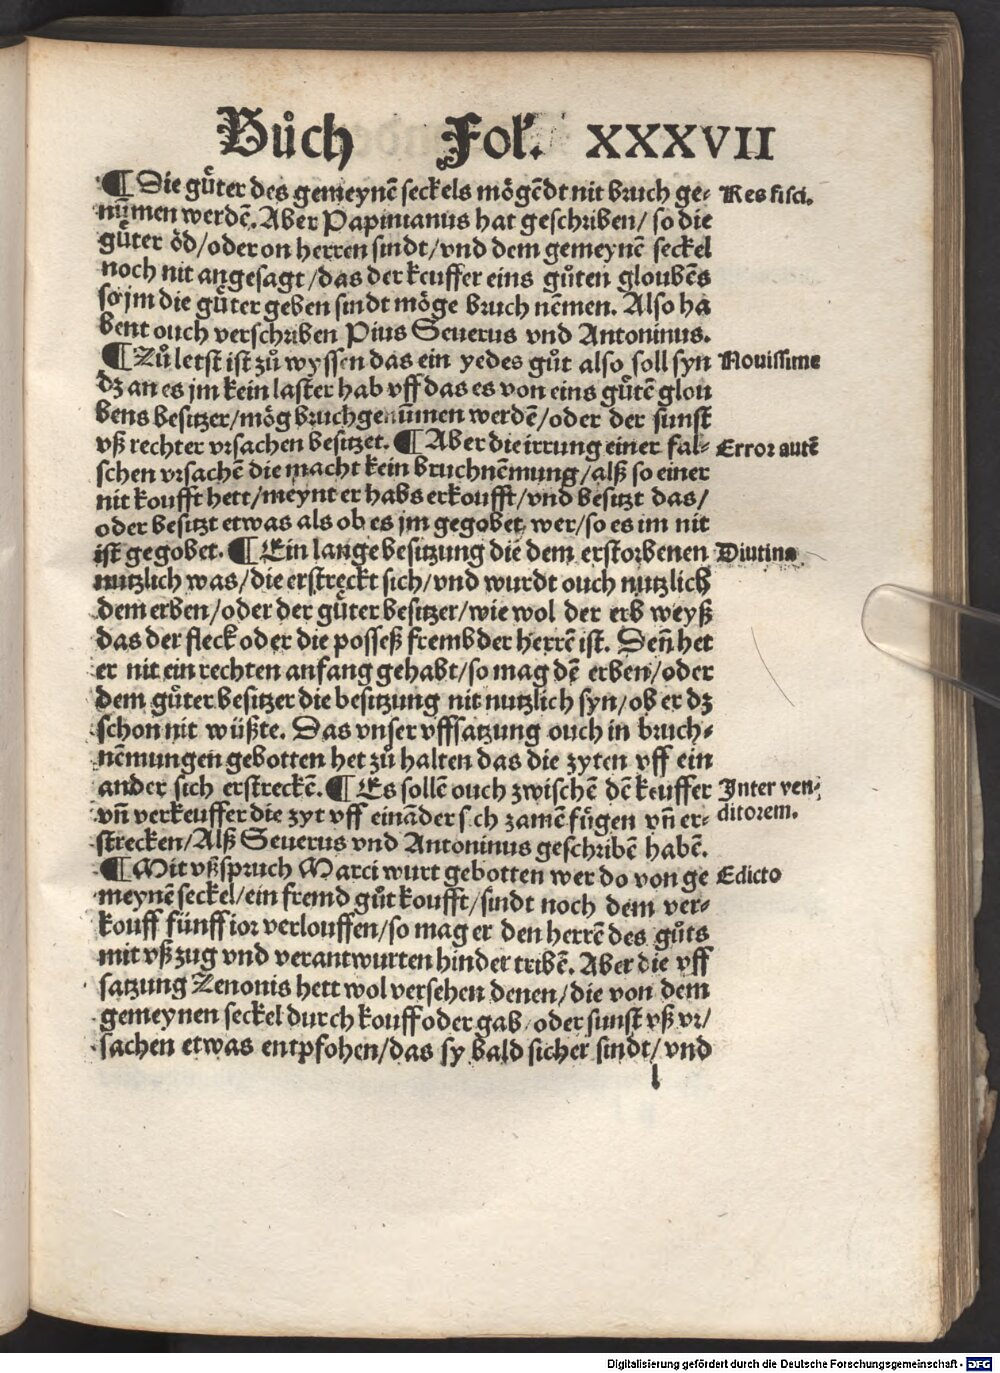 Bůch Fol. XXXVII
¶ Die gůter des gemeynē seckels mögēdt nit bruch ge⸗ Res fisci.
nūmen werdē. Aber Papinianus hat geschriben/ so die
gůter öd/oder on herren sindt/vnd dem gemeynē seckel
noch nit angesagt/das der keuffer eins gůten gloubēs
so jm die gůter geben sindt möge bruch nēmen. Also ha
bent ouch verschriben Pius Seuerus vnd Antoninus.
¶ Zů letst ist zů wyssen das ein yedes gůt also soll syn Nouissime
dz an es jm kein laster hab vff das es von eins gůtē glou
bens besitzer/mög bruch genūmen werdē/oder der sunst
vß rechter vrsachen besitzet. ¶ Aber die irrung einer fal⸗ Error autē
schen vrsachē die macht kein bruchnēmung/alß so einer
nit koufft hett/meynt er habs erkoufft/vnd besitzt das/
oder besitzt etwas als ob es jm gegobet wer/so es im nit
ist gegobet. ¶ Ein lange besitzung die dem erstorbenen Diutina
nutzlich was/die erstreckt sich/vnd wurdt ouch nutzlich
dem erben/oder der gůter besitzer/wie wol der erb weyß
das der fleck oder die posseß frembder herrē ist. Deñ het
er nit ein rechten anfang gehabt/so mag dē erben/oder
dem gůter besitzer die besitzung nit nutzlich syn/ob er dz
schon nit wüßte. Das vnser vffsatzung ouch in bruch⸗
nēmungen gebotten het zů halten das die zyten vff ein
ander sich erstreckē. ¶ Es sollē ouch zwischē dē keuffer Inter ven⸗
vñ verkeuffer die zyt vff eināder sich zamē fůgen vñ er⸗ ditorem.
strecken/Alß Seuerus vnd Antoninus geschribē habē.
¶ Mit vßspruch Marci wurt gebotten wer do von ge Edicto
meynē seckel/ein fremd gůt koufft/sindt noch dem ver⸗
kouff fünff ior verlouffen/so mag er den herrē des gůts
mit vßzug vnd verantwurten hinder tribē. Aber die vff
satzung Zenonis hett wol versehen denen/die von dem
gemeynen seckel durch kouff oder gab/oder sunst vß vr/
sachen etwas entpfohen/das sy bald sicher sindt/vnd
l
Digitalisierung gefördert durch die Deutsche Forschungsgemeinschaft - DFG